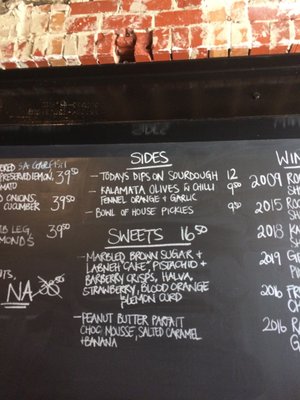 SIDES
- TODAYS DIPS ON SOURDOUGH 12
- KALAMATA OLIVES & CHILLI 9.50
FENNEL ORANGE & GARLIC
- BOWL OF HOUSE PICKLES 9.50
SWEETS 16.50
- MARBLED BROWN SUGAR &
LABNEH CAKE, PISTACHIO &
BARBERRY CRISPS, HALVA,
STRAWBERRY, BLOOD ORANGE
& LEMON CURD
- PEANUT BUTTER PARFAIT
CHOC MOUSSE, SALTED CARAMEL
& BANANA
SA GARFISH
PRESERVED LEMON, 39.50
ONIONS,
CUCUMBER 39.50
LEG, 39.50
NA
WIN
2009 RO
2015 RO
2018
2019
2016 FR
2016